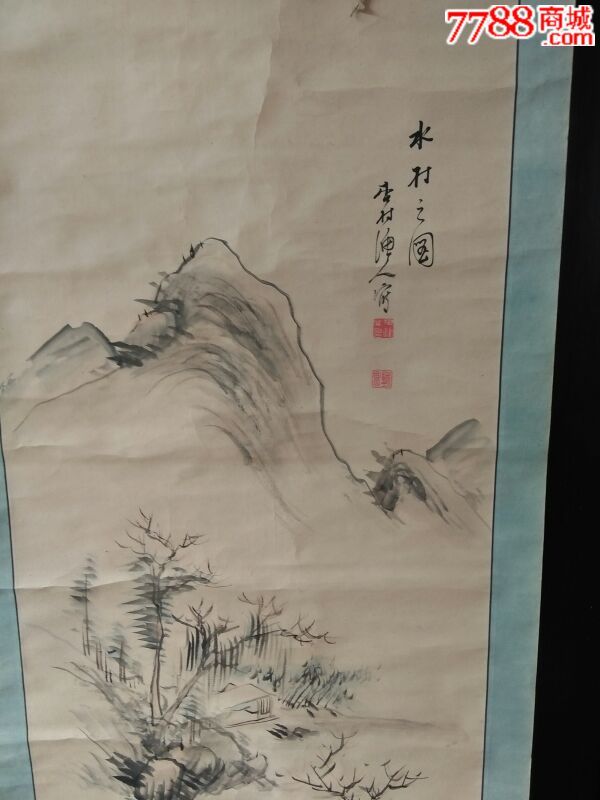 7788商城
.com
水村之图
杏村渔人写